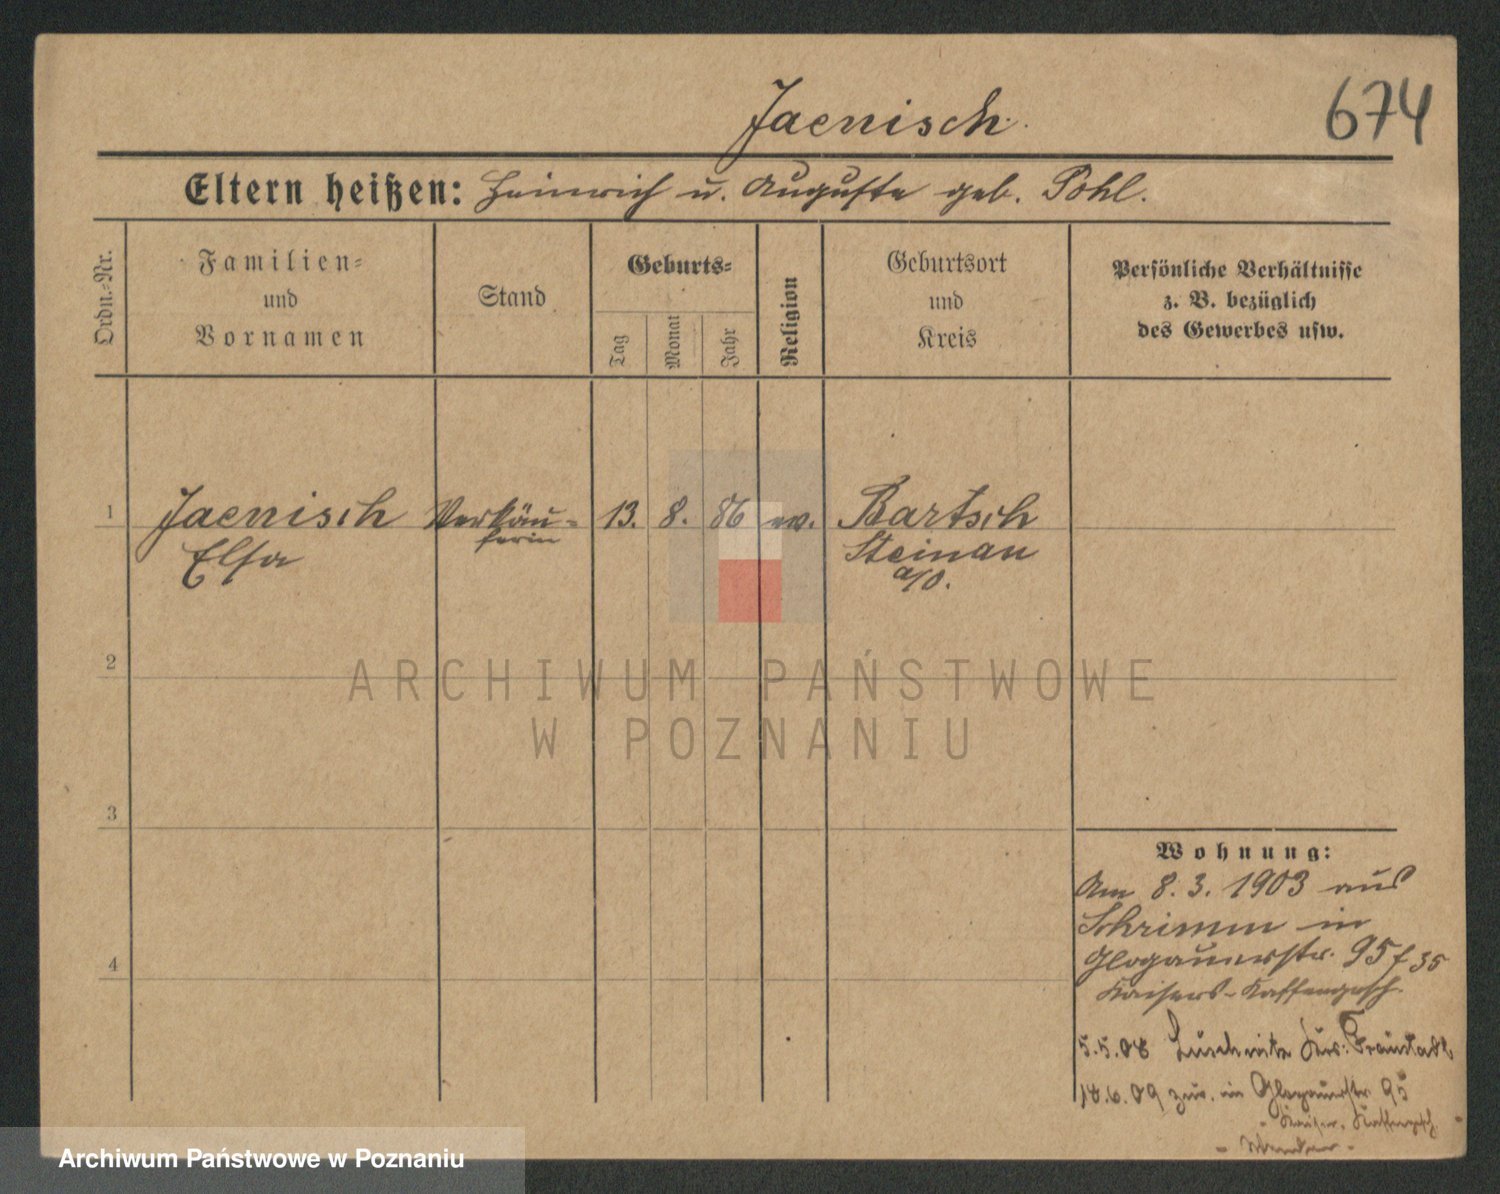 Jaenisch.
674
Eltern heißen: Heinrich u. Auguste geb. Pohl.
Ordn.-Nr.
Familien-
und
Vornamen
Stand
Geburts-
Tag
Monat
Jahr
Religion
Geburtsort
und
Kreis
Persönliche Verhältnisse
z. B. bezüglich
des Gewerbes usw.
1
Jaenisch
Elsa
Verkäu-
ferin
13. 8. 86 ev.
Bartsch
Steinau
a/O.
2
ARCHIWUM PAŃSTWOWE
W POZNANIU
3
4
Wohnung:
Am 8. 3. 1903 aus
Schrimm in
Glogauerstr. 95
Kaisers-Kaffeegesch.
5.5.08 Luschwitz Krs. Fraustadt
18.6.09 zur. in Glogauerstr. 95
Kaiser. Kaffeegesch.
Archiwum Państwowe w Poznaniu